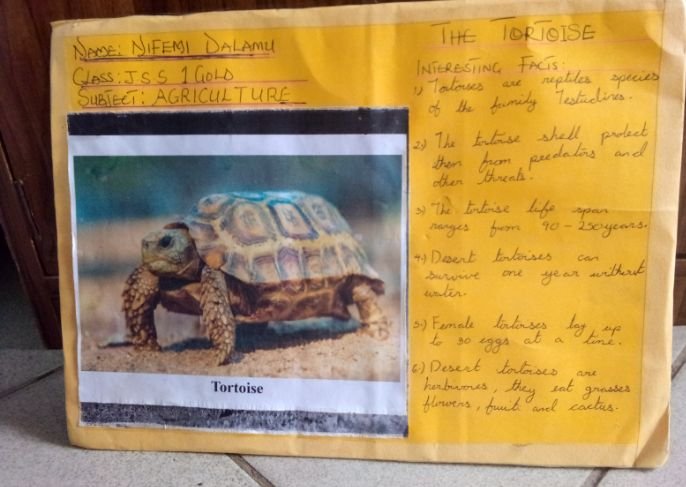 NAME: NIFEMI DALAMU
CLASS: J.S.S 1 GOLD
SUBJECT: AGRICULTURE
Tortoise
THE TORTOISE
INTERESTING FACTS:
1) Tortoises are reptiles species
of the family Testudines.
2) The tortoise shell protect
them from predators and
other threats.
3) The tortoise life span
ranges from 90 - 250 years.
4) Desert tortoises can
survive one year without
water.
5) Female tortoises lay up
to 30 eggs at a time.
6) Desert tortoises are
herbivores, they eat grasses
flowers, fruit and cactus.